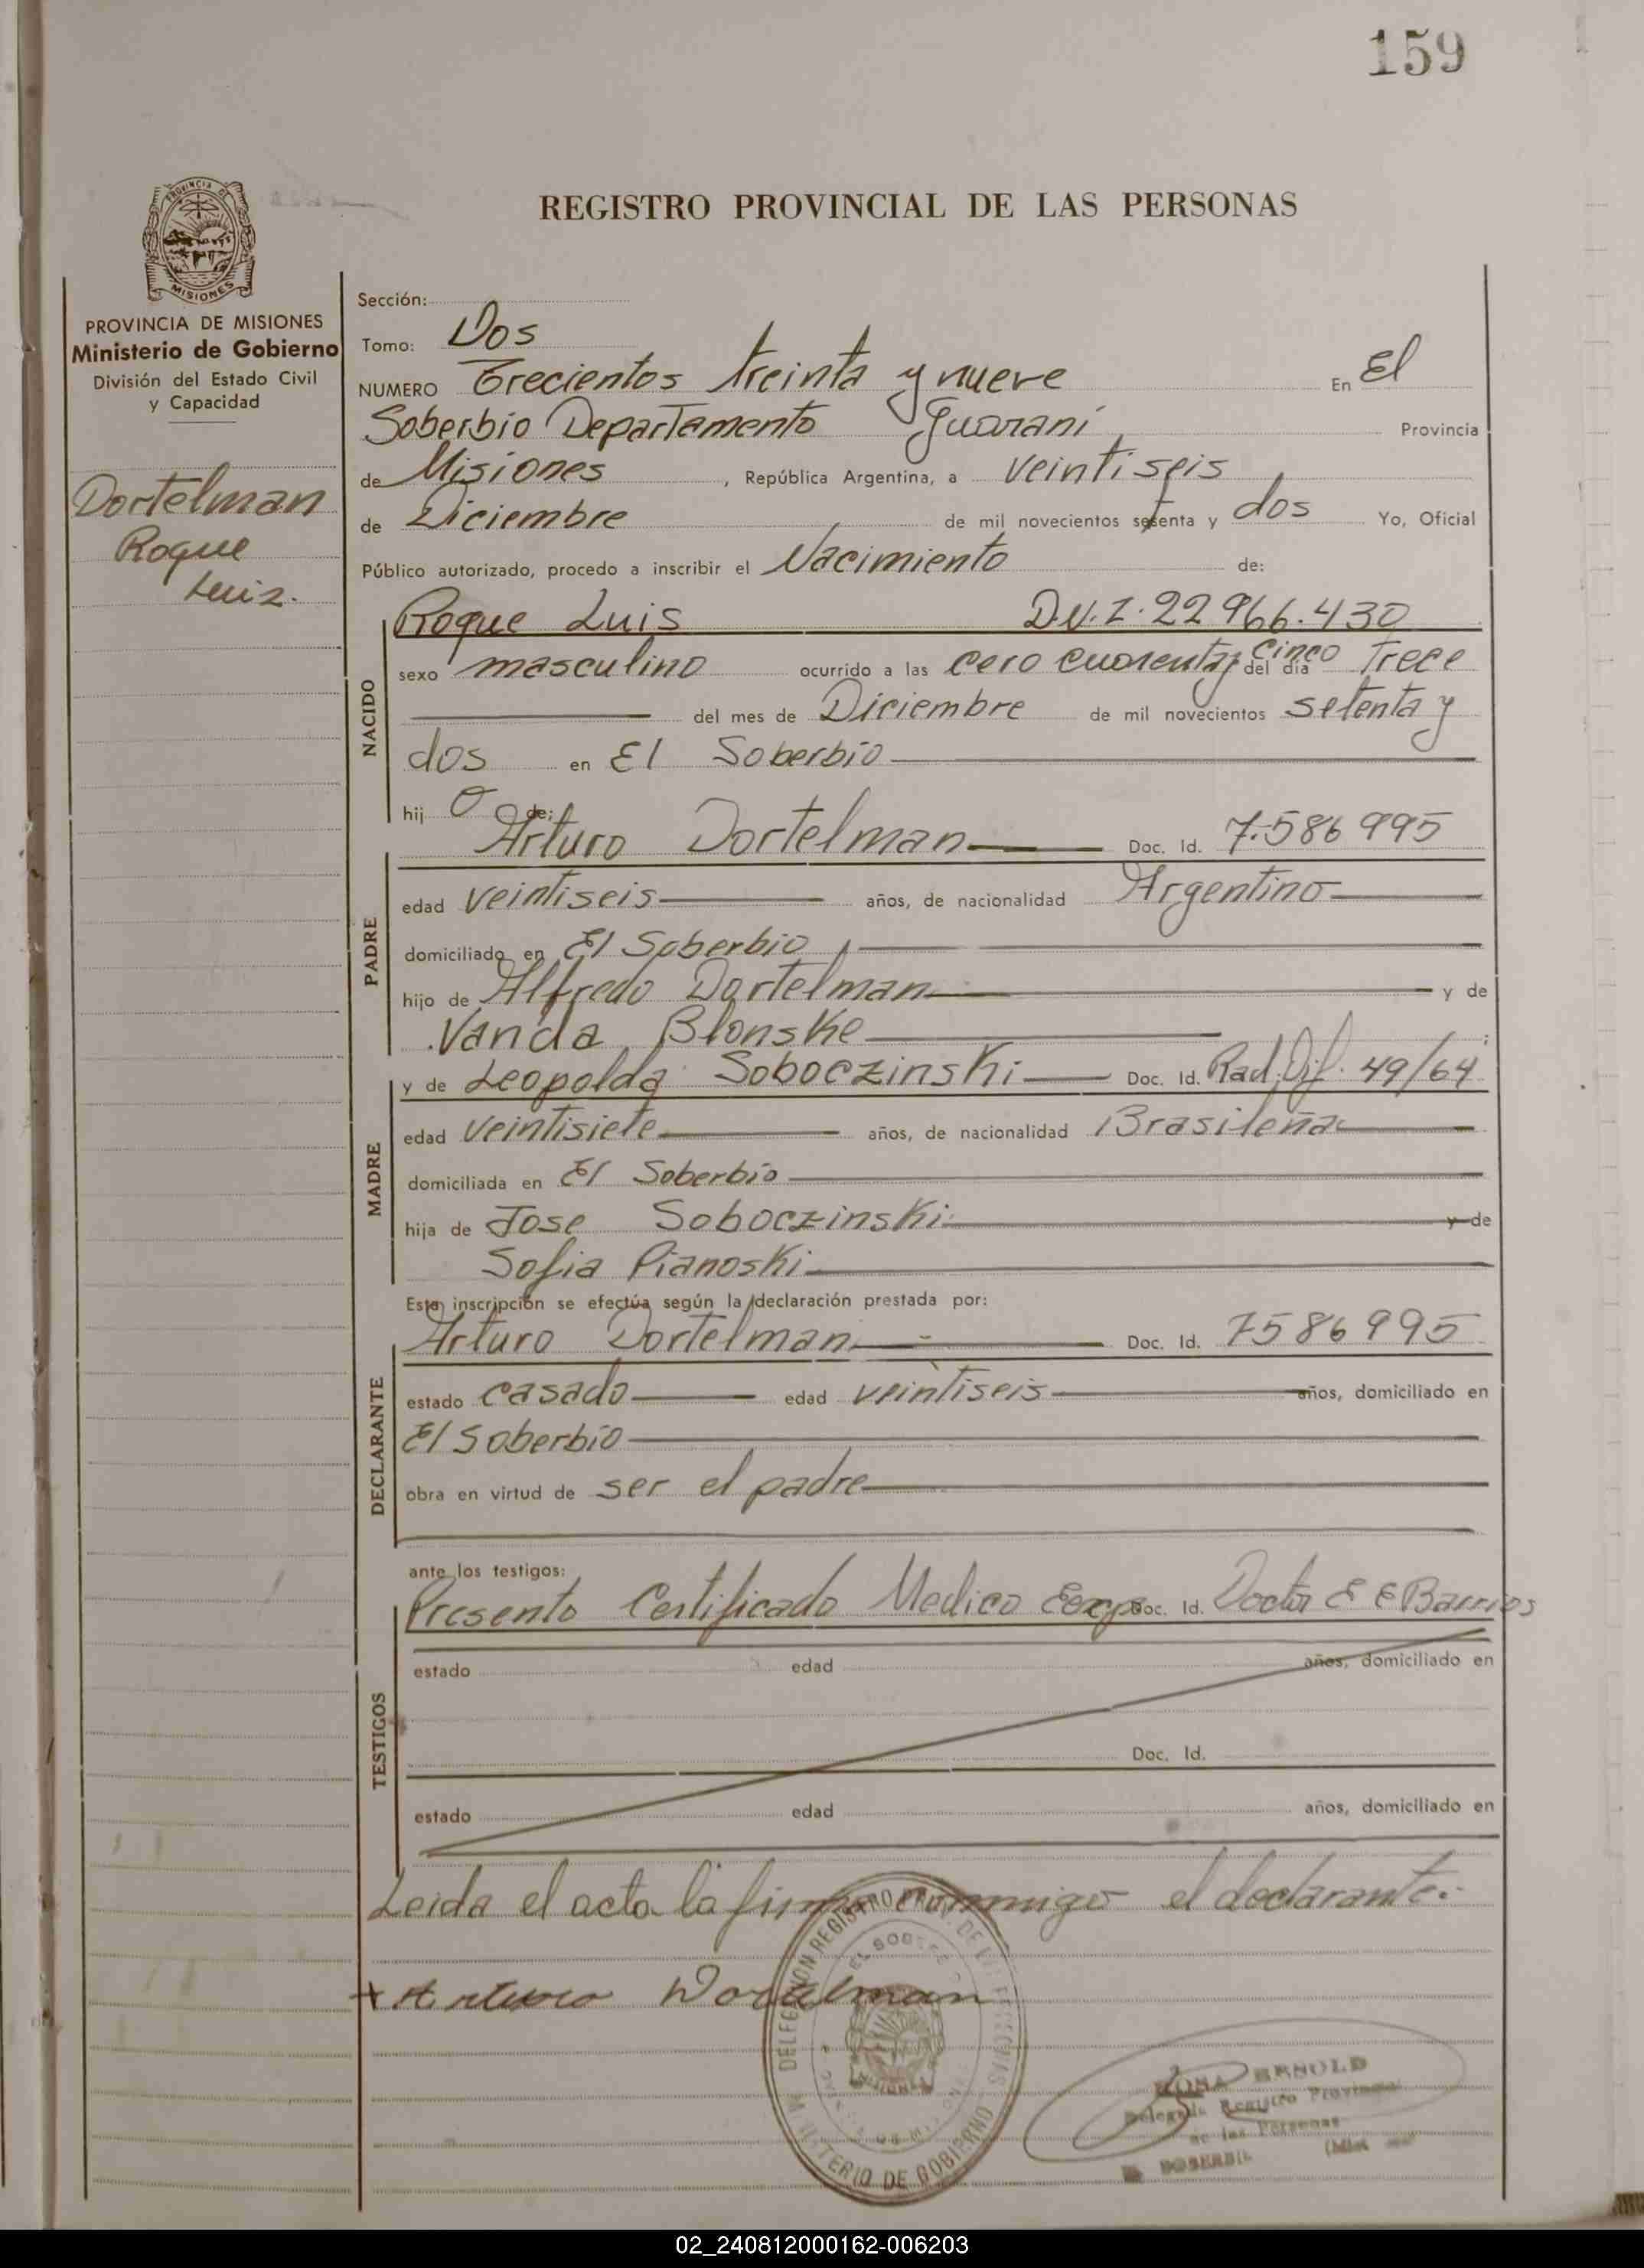 159
REGISTRO PROVINCIAL DE LAS PERSONAS
PROVINCIA DE MISIONES
PROVINCIA DE MISIONES
Ministerio de Gobierno
División del Estado Civil
y Capacidad
Dortelman
Roque
Luiz.
Sección:
Tomo: Dos
NUMERO Trecientos treinta y nueve En El
Soberbio Departamento Guaraní Provincia
de Misiones, República Argentina, a veintiseis
de Diciembre de mil novecientos setenta y dos Yo, Oficial
Público autorizado, procedo a inscribir el Nacimiento de:
NACIDO
Roque Luis D.N.I. 22 966.430
sexo masculino ocurrido a las cero cuarenta y cinco del día Trece
del mes de Diciembre de mil novecientos setenta y
dos en El Soberbio
hij o de:
PADRE
Arturo Dortelman Doc. Id. 7.586 995
edad veintiseis años, de nacionalidad Argentino
domiciliado en El Soberbio
hijo de Alfredo Dortelman y de
Vanda Blonske
MADRE
y de Leopolda Soboczinski Doc. Id. Rad. Dif. 49/64
edad veintisiete años, de nacionalidad Brasileña
domiciliada en El Soberbio
hija de Jose Soboczinski y de
Sofia Pianoski
Esta inscripción se efectúa según la declaración prestada por:
DECLARANTE
Arturo Dortelman Doc. Id. 7586995
estado casado edad veintiseis años, domiciliado en
El Soberbio
obra en virtud de ser el padre
ante los testigos:
TESTIGOS
Presento Certificado Medico Doc. Id. Doctor E E Barrios
estado edad años, domiciliado en
Doc. Id.
estado edad años, domiciliado en
Leida el acta la firma conmigo el declarante.
Arturo Dortelman
DELEGACION REGISTRO PROV. DE LAS PERSONAS
EL SOBERBIO
MISIONES
MINISTERIO DE GOBIERNO
ROSA
Delegada Registro Provincial
de las Personas
SOBERBIO
02_240812000162-006203